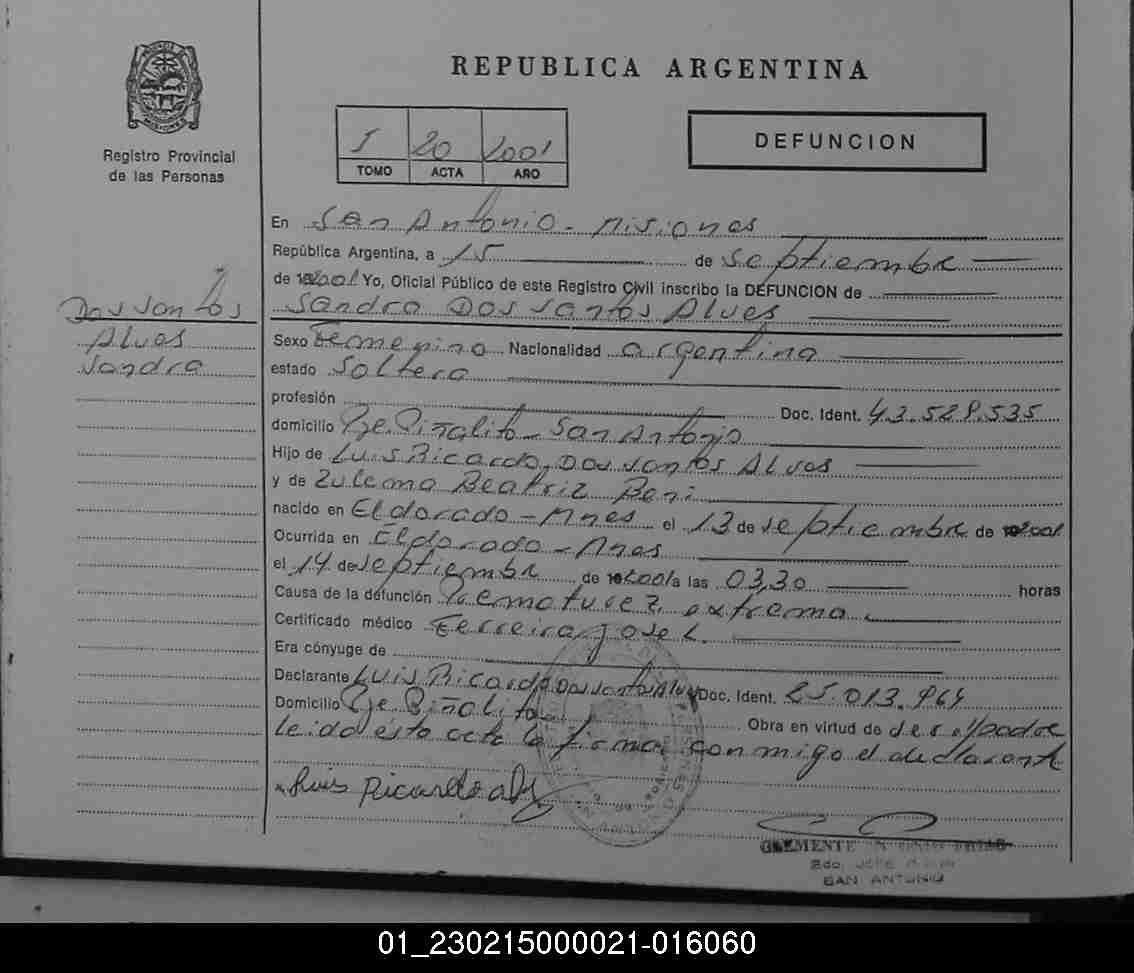 PROVINCIA DE MISIONES
Registro Provincial
de las Personas
REPUBLICA ARGENTINA
I 20 2001
TOMO ACTA AÑO
DEFUNCION
Dos Santos
Alves
Sandra
En San Antonio - Misiones
República Argentina, a 15 de Septiembre
de 2001 Yo, Oficial Público de este Registro Civil inscribo la DEFUNCION de
Sandra Dos Santos Alves
Sexo Femenino Nacionalidad argentina
estado Soltera
profesión Doc. Ident. 43.528.535
domicilio Pje. Piñalito - San Antonio
Hijo de Luis Ricardo Dos Santos Alves
y de Zulema Beatriz
nacido en Eldorado - Mnes el 13 de septiembre de 2001
Ocurrida en Eldorado - Mnes
el 14 de septiembre de 2001 a las 03,30 horas
Causa de la defunción Prematurez extrema
Certificado médico Ferreira Jose L.
Era cónyuge de
Declarante Luis Ricardo Dos Santos Alves Doc. Ident. 25.013.964
Domicilio Pje. Piñalito Obra en virtud de ser el padre
leida esta acta la firma conmigo el declarante
Luis Ricardo
CLEMENTE
SAN ANTONIO
01_230215000021-016060